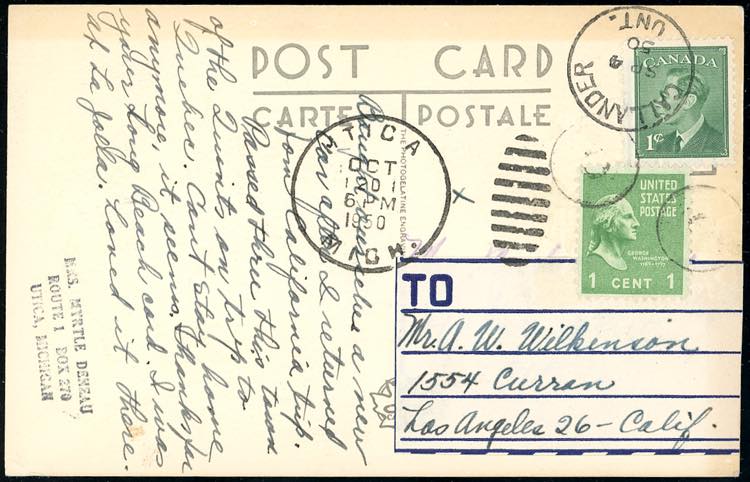 POST CARD
CARTE POSTALE
THE PHOTOGELATINE ENGRAV
CALLANDER
SP 4
50
ONT.
CANADA
1¢
UTICA
OCT
1950
6 PM
MICH.
UNITED
STATES
POSTAGE
GEORGE
WASHINGTON
1789-1797
1 CENT 1
a new
car after I returned
from California trip.
Passed thru this town
of the Quints on trip to
Quebec. Cant stay home
anymore, it seems. Thanks for
your Long Beach card. I was
at La Jolla. Loved it there.
MRS. MYRTLE DENEAU
ROUTE 1 BOX 279
UTICA, MICHIGAN
TO
Mr. A. W. Wilkenson
1554 Curran
Los Angeles 26 - Calif.